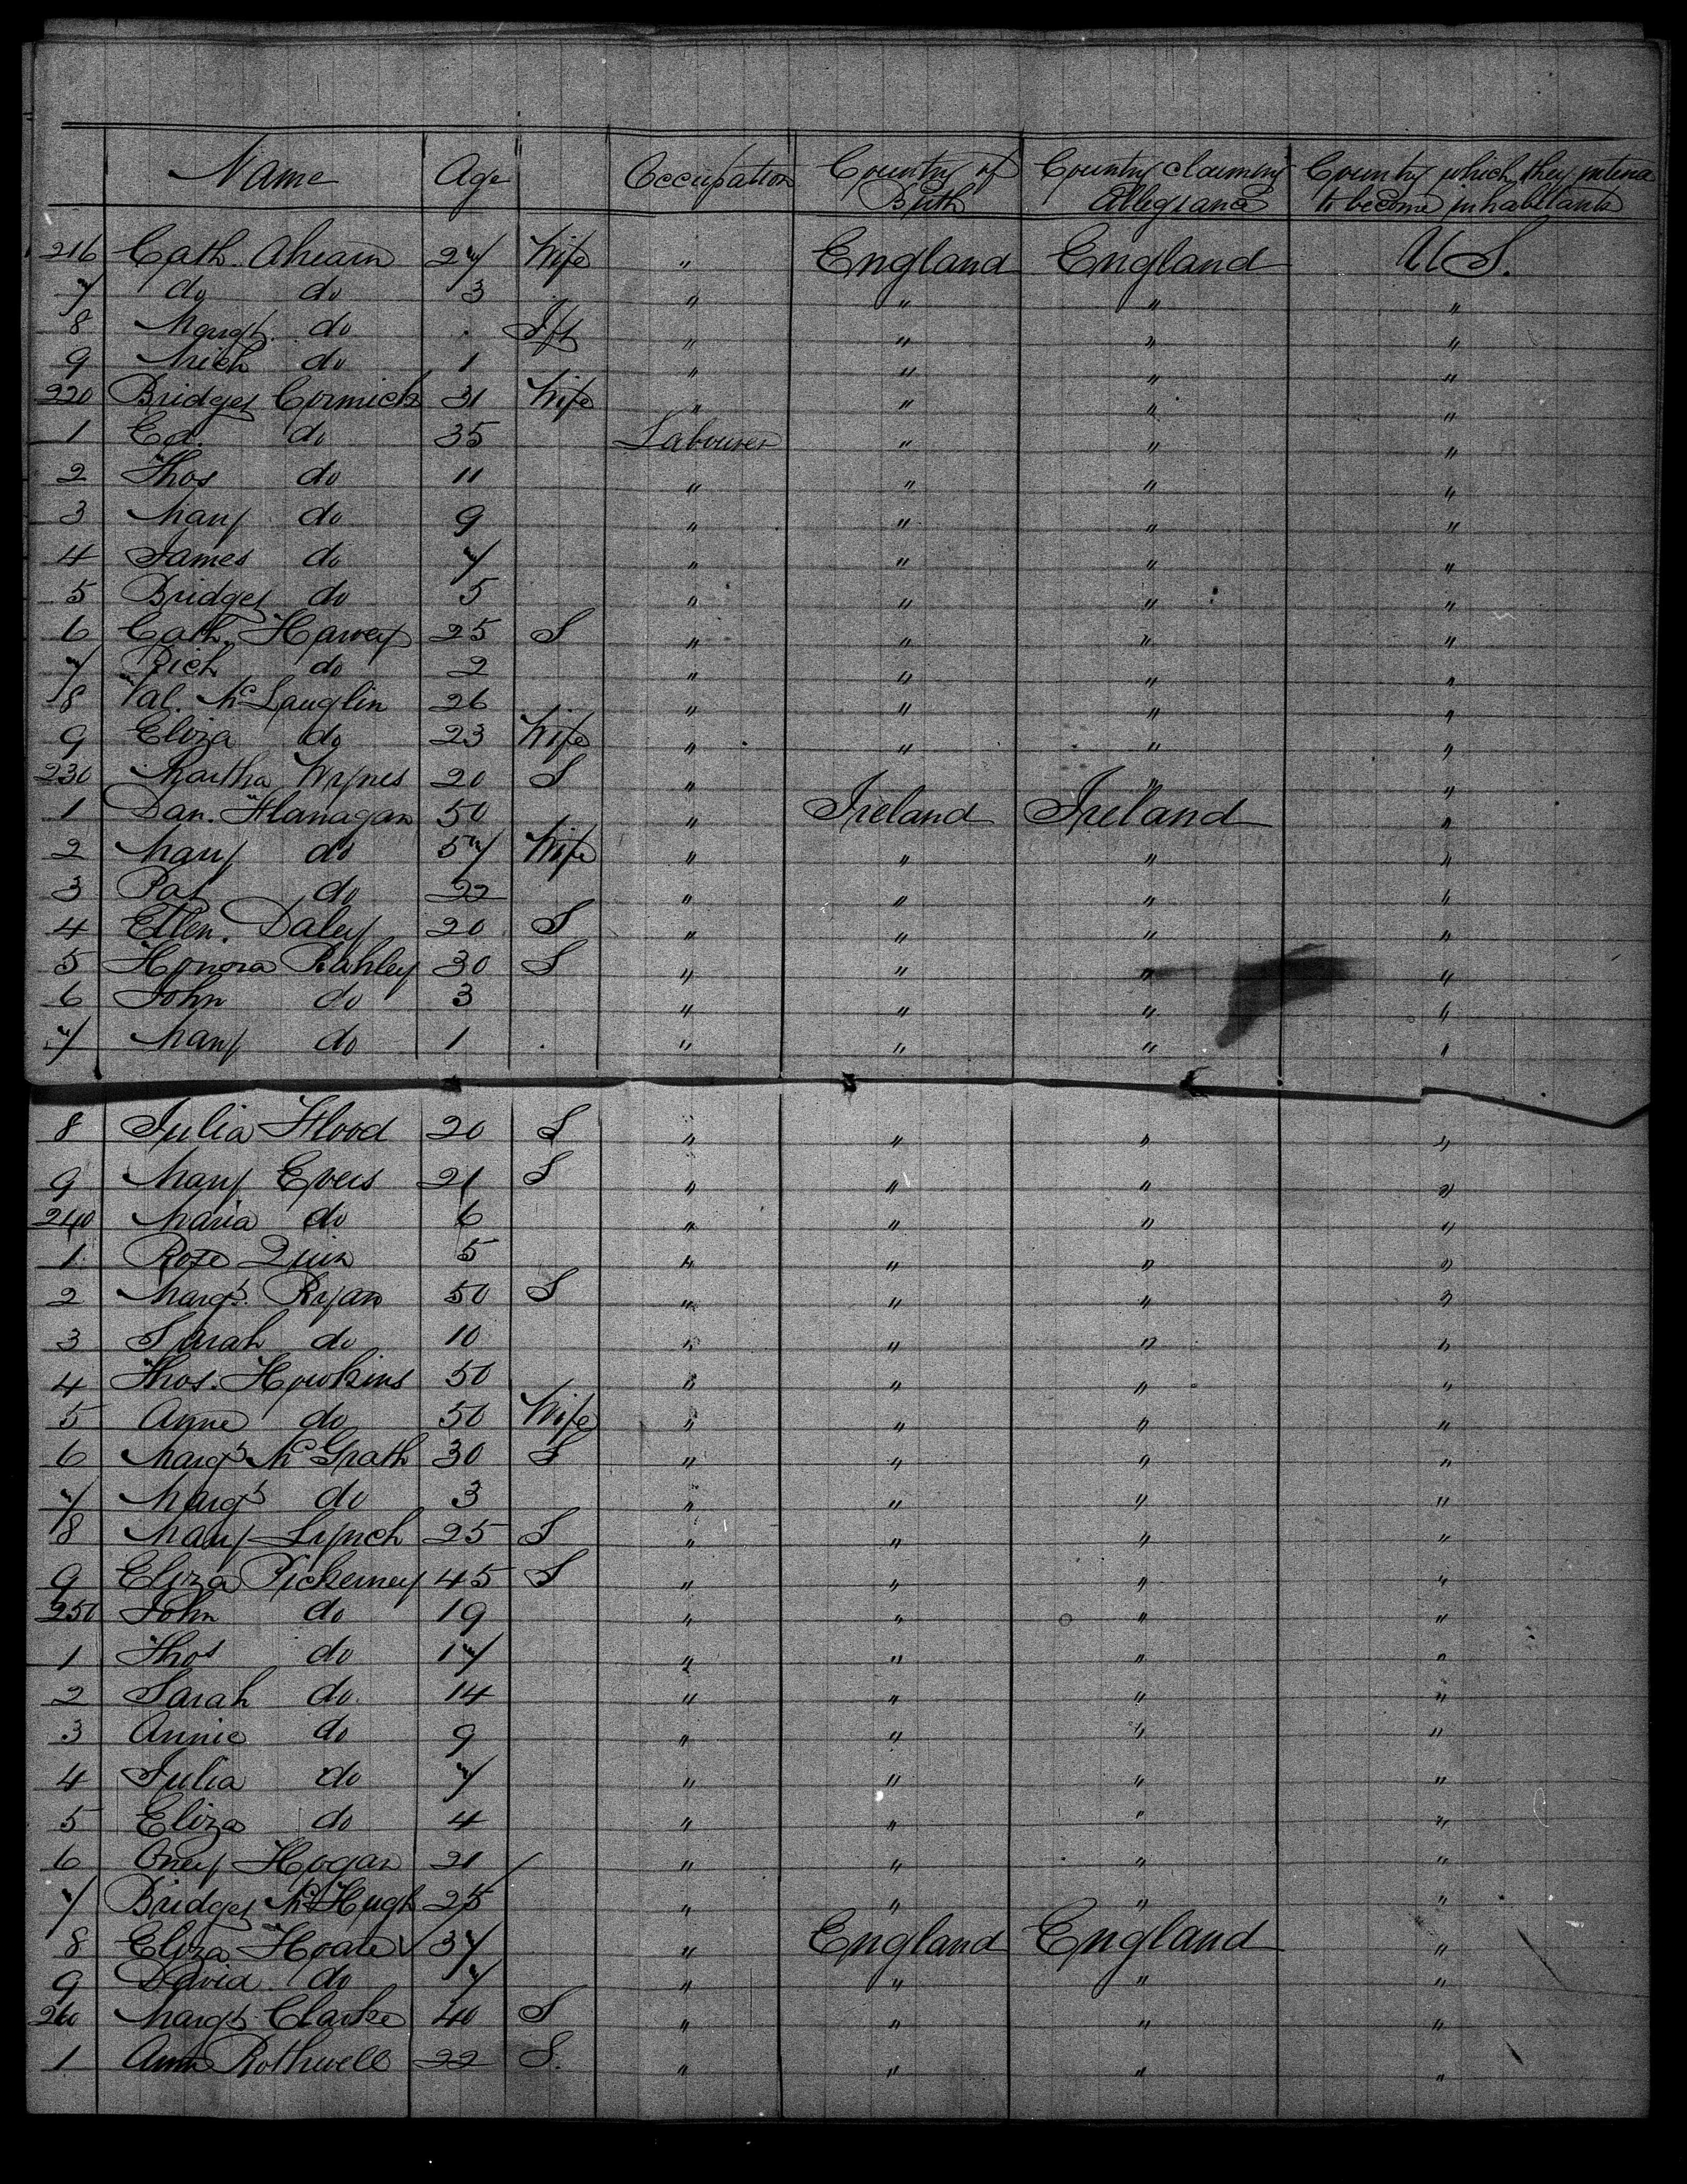 Name Age Occupation Country of Birth Country claiming Allegiance Country which they intend to become inhabitants
216 Cath. Ahearn 27 Wife " England England U S.
7 do do 3 " " " "
8 Margt. do . Ift " " " "
9 Mich do 1 " " " "
220 Bridget Cormick 31 Wife " " " "
1 Ed. do 35 Labourer " " "
2 Thos do 11 " " " "
3 Mary do 9 " " " "
4 James do 7 " " " "
5 Bridget do 5 " " " "
6 Cath. Harvey 25 S " " " "
7 Rich do 2 " " " "
8 Val. McLauglin 26 " " " "
9 Eliza do 23 Wife " " " "
230 Martha Wynes 20 S " " "
1 Dan. Flanagan 50 " Ireland Ireland "
2 Mary do 57 Wife " " " "
3 Pat do 22 " " " "
4 Ellen. Daley 20 S " " " "
5 Honora Rahley 30 S " " " "
6 John do 3 " " " "
7 Mary do 1 " " " "
8 Julia Flood 20 S " " " "
9 Mary Evers 21 S " " " "
240 Maria do 6 " " " "
1 Rose Quin 5 " " " "
2 Margt. Ryan 50 S " " " "
3 Sarah do 10 " " " "
4 Thos. Howkins 50 " " " "
5 Anne do 50 Wife " " " "
6 Margt McGrath 30 S " " " "
7 Margt do 3 " " " "
8 Mary Lynch 25 S " " " "
9 Eliza Pickerney 45 S " " " "
250 John do 19 " " " "
1 Thos do 17 " " " "
2 Sarah do 14 " " " "
3 Annie do 9 " " " "
4 Julia do 7 " " " "
5 Eliza do 4 " " " "
6 Oney Hogan 21 " " " "
7 Bridget McHugh 25 " " " "
8 Eliza Hoare 37 " England England "
9 David do 7 " " " "
260 Margt Clarke 40 S " " " "
1 Ann Rothwell 22 S. " " " "